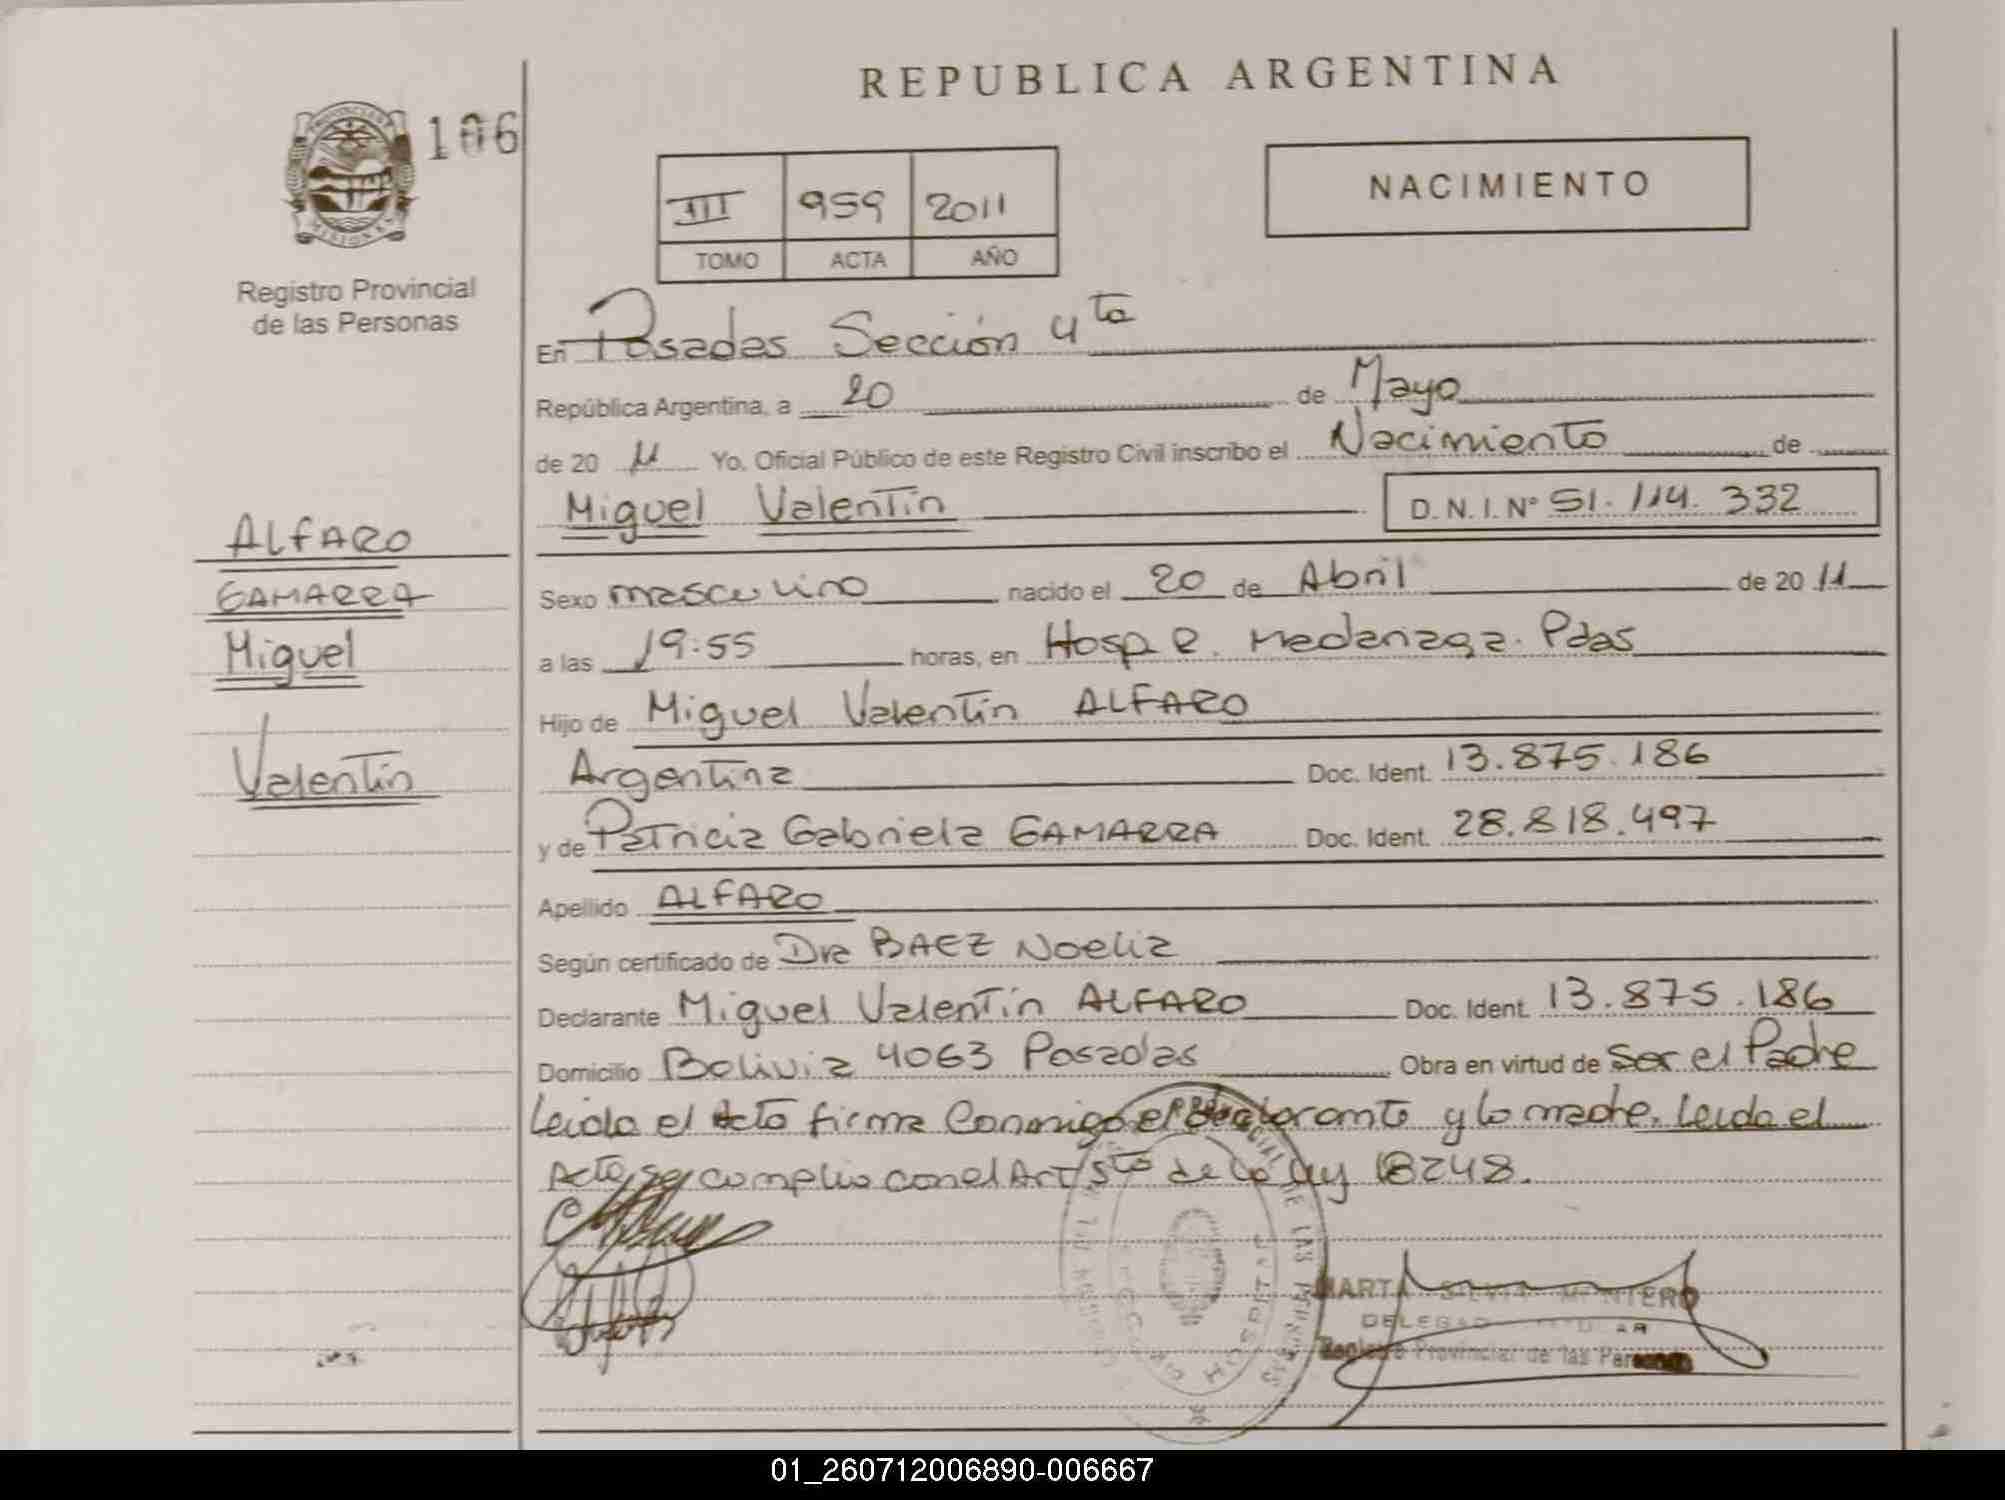 REPUBLICA ARGENTINA
PROVINCIA DE MISIONES
106
Registro Provincial
de las Personas
III 959 2011
TOMO ACTA AÑO
NACIMIENTO
En Posadas Sección 4ta
República Argentina, a 20 de Mayo
de 20 11 Yo. Oficial Público de este Registro Civil inscribo el Nacimiento de
Miguel Valentín D.N.I. Nº 51.114.332
ALFARO
GAMARRA
Miguel
Valentín
Sexo masculino nacido el 20 de Abril de 20 11
a las 19:55 horas, en Hosp R. Madariaga. Pdas
Hijo de Miguel Valentín ALFARO
Argentina Doc. Ident. 13.875.186
y de Patricia Gabriela GAMARRA Doc. Ident. 28.818.497
Apellido ALFARO
Según certificado de Dra BAEZ Noelia
Declarante Miguel Valentín ALFARO Doc. Ident. 13.875.186
Domicilio Bolivia 4063 Posadas Obra en virtud de Ser el Padre
Leida el Acta firma Conmigo el declarante y la madre. Leida el
Acta se cumplio con el Art 5to de la ley 18248.
MARTA SILVIA MONTERO
DELEGADA TITULAR
Registro Provincial de las Personas
01_260712006890-006667